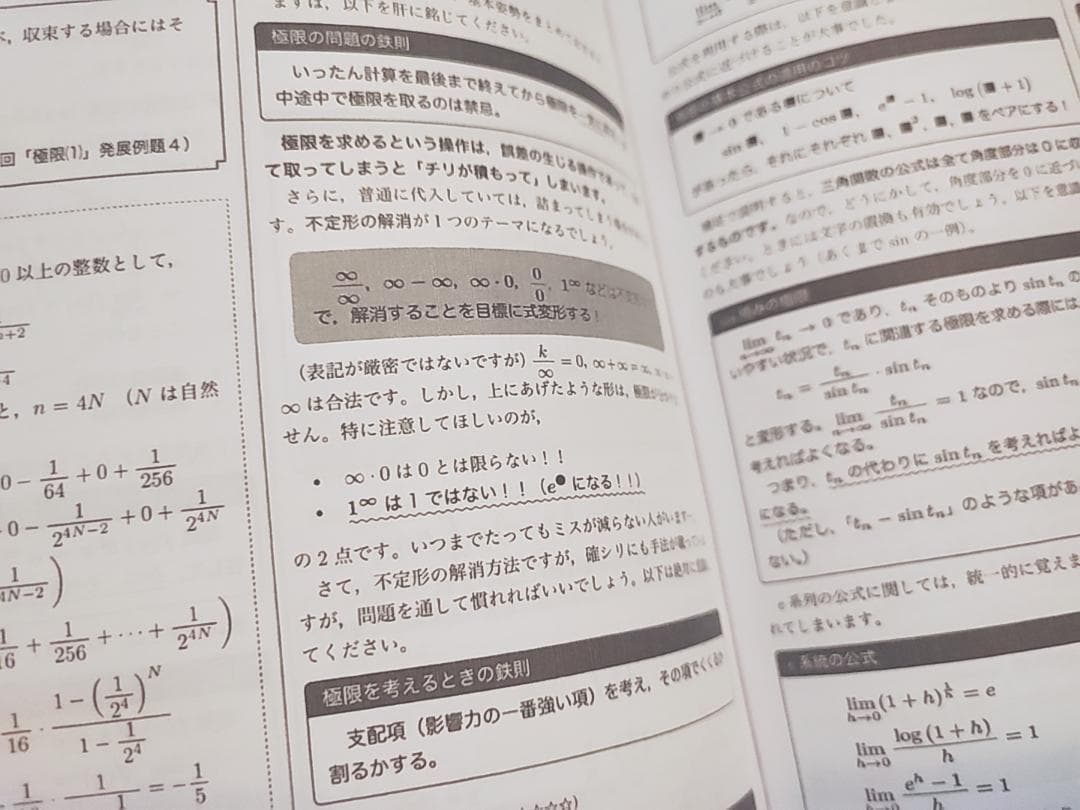 収束する場合にはそ
回「極限(1)」発展例題4)
0以上の整数として,
n = 4N (Nは自然
0 - 1/64 + 0 + 1/256
0 - 1/2^{4N-2} + 0 + 1/2^{4N}
1/16 + 1/256 + ⋯ + 1/2^{4N})
1/16 · (1 - (1/2^4)^N)/(1 - 1/2^4)
= -1/5
まずは,以下を肝に銘じてください。
極限の問題の鉄則
いったん計算を最後まで終えてから極限を
中途中で極限を取るのは禁忌。
極限を求めるという操作は,誤差の生じる操作で
て取ってしまうと「チリが積もって」しまいます。
さらに,普通に代入していては,詰まってしまう
す。不定形の解消が1つのテーマになるでしょう。
∞/∞, ∞ - ∞, ∞·0, 0/0, 1^∞ などは不定
で,解消することを目標に式変形する!
(表記が厳密ではないですが) k/∞ = 0, ∞+∞=∞,
∞は合法です。しかし,上にあげたような形は,極限が
せん。特に注意してほしいのが,
• ∞·0は0とは限らない!!
• 1^∞は1ではない!! (e^●になる!!)
の2点です。いつまでたってもミスが減らない人がいます
さて,不定形の解消方法ですが,確シリにも手法が
すが,問題を通して慣れればいいでしょう。以下は絶対に
てください。
極限を考えるときの鉄則
支配項(影響力の一番強い項)を考え,その項でくくるか
割るかする。
■ → 0 である■について
sin ■, 1 - cos ■, e^■ - 1, log(■ + 1)
があったら,それにそれぞれ ■, ■^2, ■, ■ をペアにする!
三角関数の公式は全て角度部分は0に
するものです。なので,どうにかして,角度部分を0に近づ
ください。ときには文字の置換も有効でしょう。以下を意識
(あくまで sin の一例)。
lim_{n→∞} t_n → 0 であり, t_n そのものより sin t_n の
いやすい状況で, t_n に関連する極限を求める際には
t_n = t_n/sin t_n · sin t_n
と変形する。 lim_{n→∞} t_n/sin t_n = 1 なので, sin t_n
考えればよくなる。
つまり, t_n の代わりに sin t_n を考えればよ
になる。
(ただし,「t_n - sin t_n」のような項があ
ない。)
e系列の公式に関しては,統一的に覚えま
れてしまいます。
e系統の公式
lim_{h→0} (1 + h)^{1/h} = e
lim_{h→0} log(1 + h)/h = 1
lim_{h→0} (e^h - 1)/h = 1